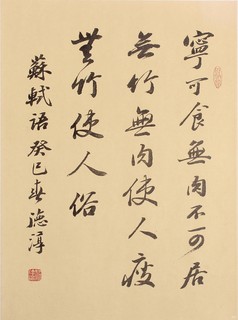 寧可食無肉不可居
無竹無肉使人瘦
無竹使人俗
蘇軾語癸巳春德淳